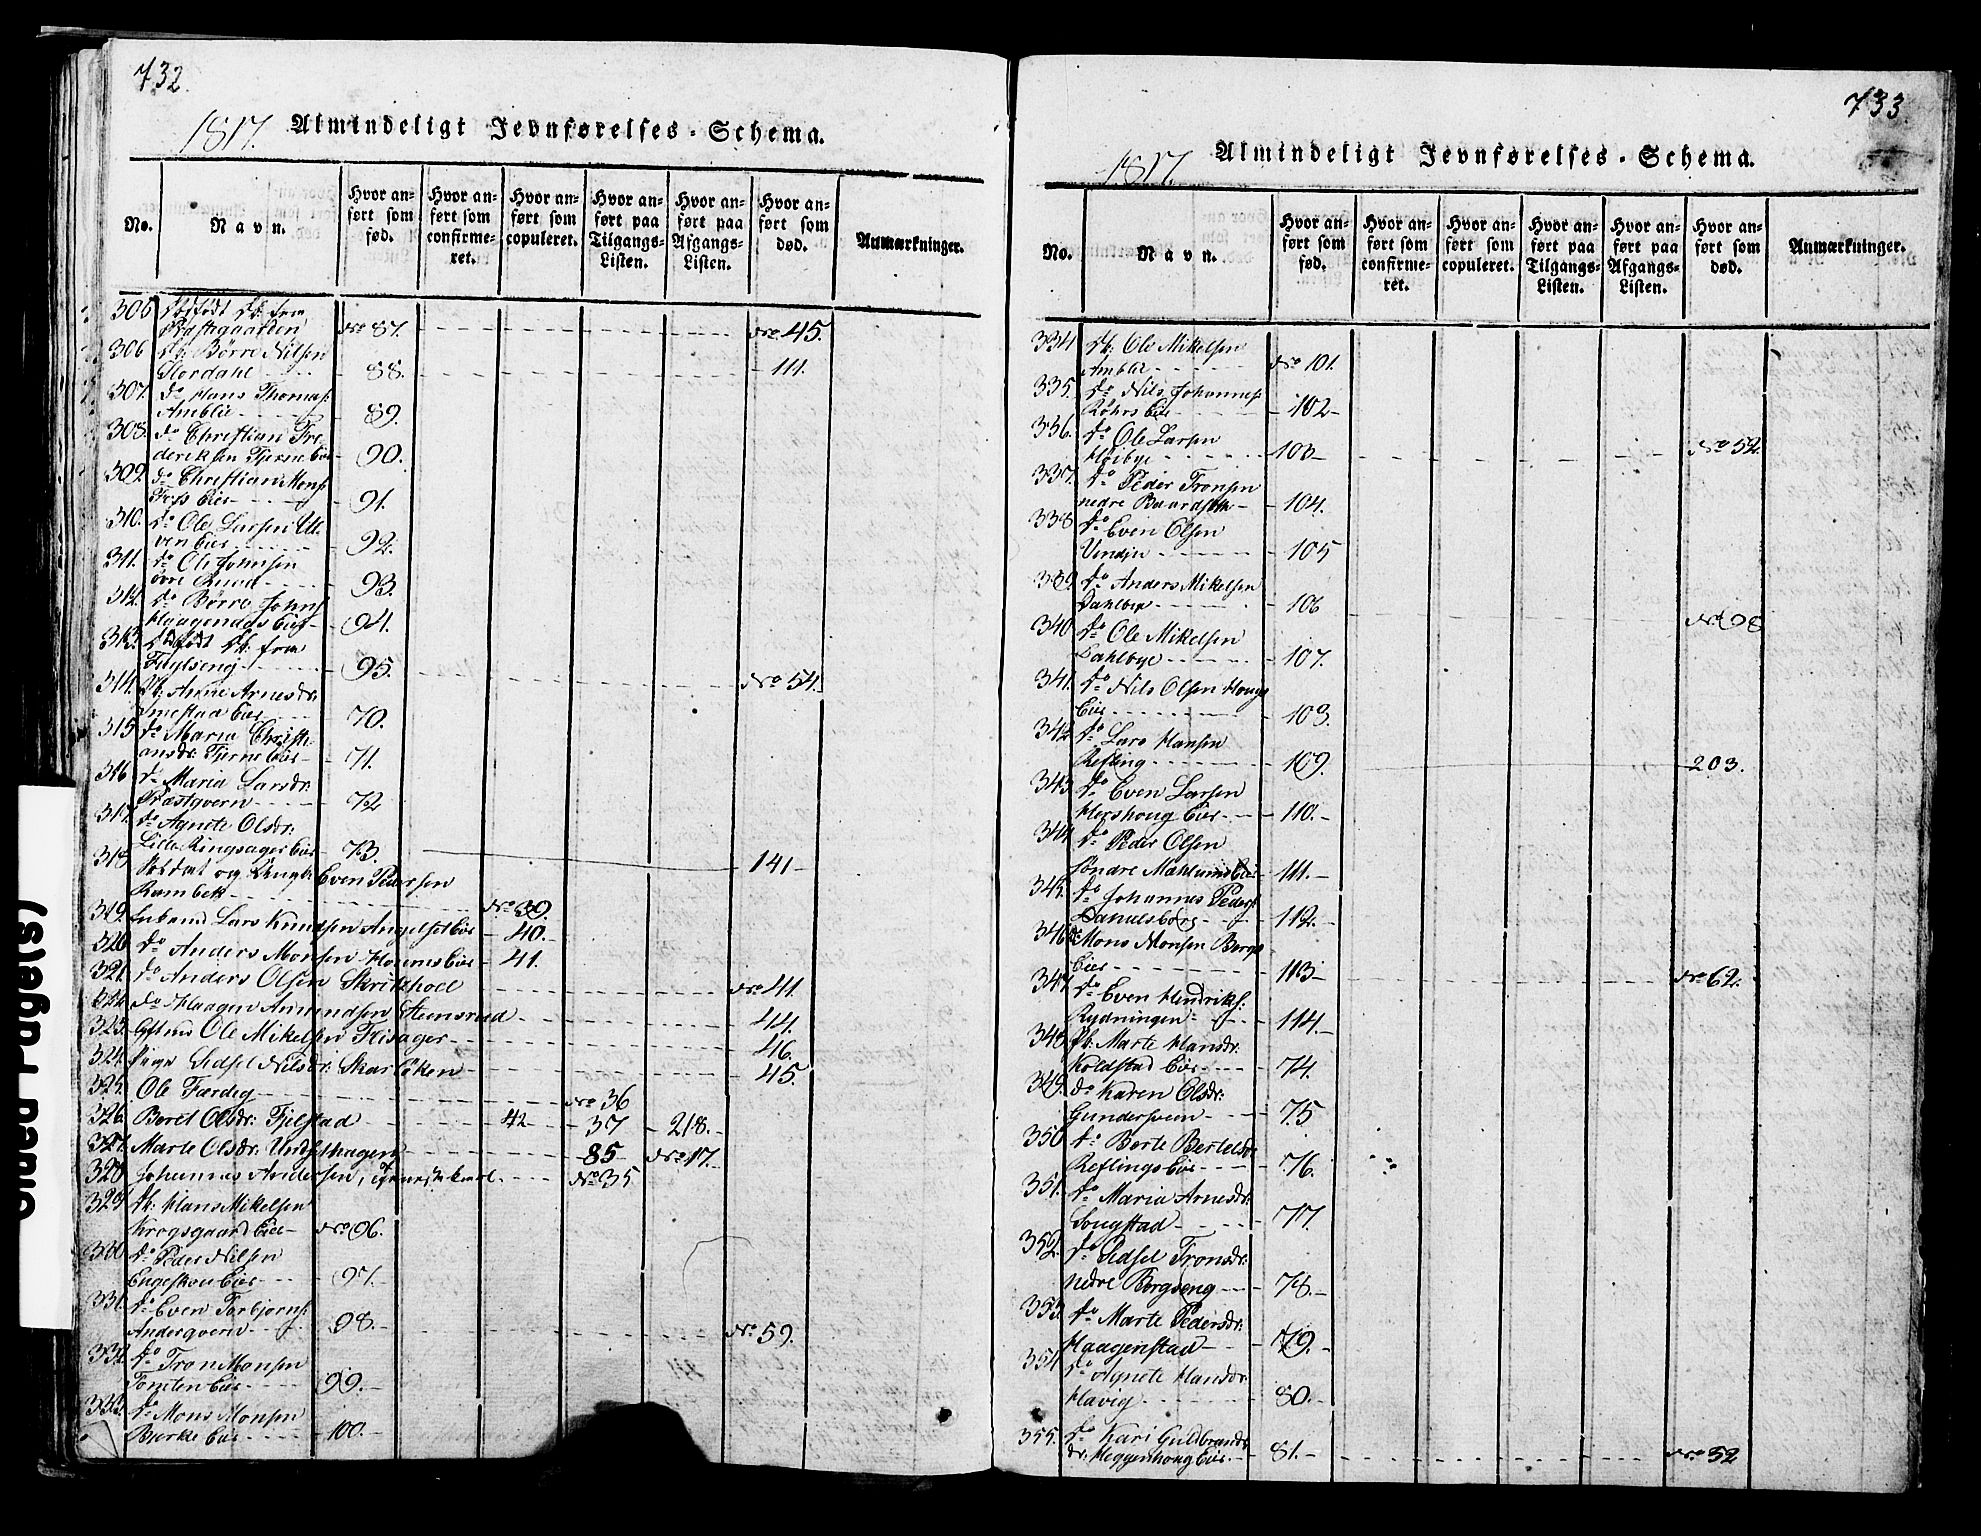 732.
1817. Almindeligt Jevnførelses-Schema.
No. Navn. Hvor anført som fød. Hvor anført som confirmeret. Hvor anført som copuleret. Hvor anført paa Tilgangs-Listen. Hvor anført paa Afgangs-Listen. Hvor anført som død. Anmærkninger.
305 Dødfødt Db: fra
No 87. No 45.
306 Db: Börre Nilsen
Stordahl 88. 111.
307. do Hans Thomas:
Amblie 89.
308. do Christian Fre-
deriksen Tjerne Eie 90.
309. do Christian Mons:
Foss Eie 91.
310. do Ole Larsen Ul-
ven Eie 92.
311. do Ole Johnsen
övre Ruud 93.
312. do Börre Johns:
Eie 94.
313. Dødfødt Db: fra
95.
314. Pb: Anne Arnesdr: No 54.
Imestad Eie 70.
315 do Maria Christi-
ansdr: Tjerne Eie 71.
316 do Maria Larsdr:
Præstqvern 72
317. do Agnete Olsdr:
Lille Ringsager Eie 73. 141
318 Soldat og Ungk: Even Pedersen
Rambek No 39.
319. Enkemd Lars Knudsen Eie 40.
320 do Anders Monsen Eie 41.
321. do Anders Olsen Skrikhoel No 41.
322. do Haagen Amundsen Steensrud 44.
323. Giftmd Ole Mikelsen Frisager 46.
324. Pige Sidsel Nilsdr: 45.
325. Ole Færdig No 36
326. Beret Olsdr: Fjelstad 42 37 218.
327. Marte Olsdr: 85 No 17.
328 Johannes Andersen, No 35
329 Db: Hans Mikelsen
Krogsgaard Eie No 96.
330. do Peder Nilsen
Eie 97.
331. do Even Torbjørns:
Anderqvern 98. No 59.
332. do Tron Monsen
Tomten Eie 99.
333. do Mons Monsen
Bjerke Eie 100.
733.
1817. Almindeligt Jevnførelses-Schema.
No. Navn. Hvor anført som fød. Hvor anført som confirmeret. Hvor anført som copuleret. Hvor anført paa Tilgangs-Listen. Hvor anført paa Afgangs-Listen. Hvor anført som død. Anmærkninger.
334 Db: Ole Mikelsen
Amblie No 101.
335. do Nils Johannes:
Röhrs Eie 102
336. do Ole Larsen No 52.
Høibye 103
337. do Peder Tronsen
nedre Baardseth 104.
338 do Even Olsen
105
339. do Anders Mikelsen
Dahlbye 106
340 do Ole Mikelsen
Dahlbye 107.
341. do Nils Olsen Hougs
Eie 108
342 do Lars Hansen
Refling 109. 203.
343. do Even Larsen
Eie 110.
344 do Peder Olsen
søndre Mæhlum Eie 111.
345. do Johannes Peders:
112.
346 do Mons Monsen Bergs
Eie 113 No 62.
347. do Even Hendriks:
Rydningen 114.
348 Pb: Marte Hansdr:
Koldstad Eie 74.
349. do Karen Olsdr:
75
350 do Berte Bertelsdr:
Reflings Eie 76.
351. do Maria Arnesdr:
77
352. do Sidsel Tronsdr:
nedre Bergseng 78.
353. do Marte Pedersdr:
Haagenstad 79.
354 do Agnete Hansdr:
80.
355. do Kari Guldbrands
dr: Heggenhoug Eie 81. No 52